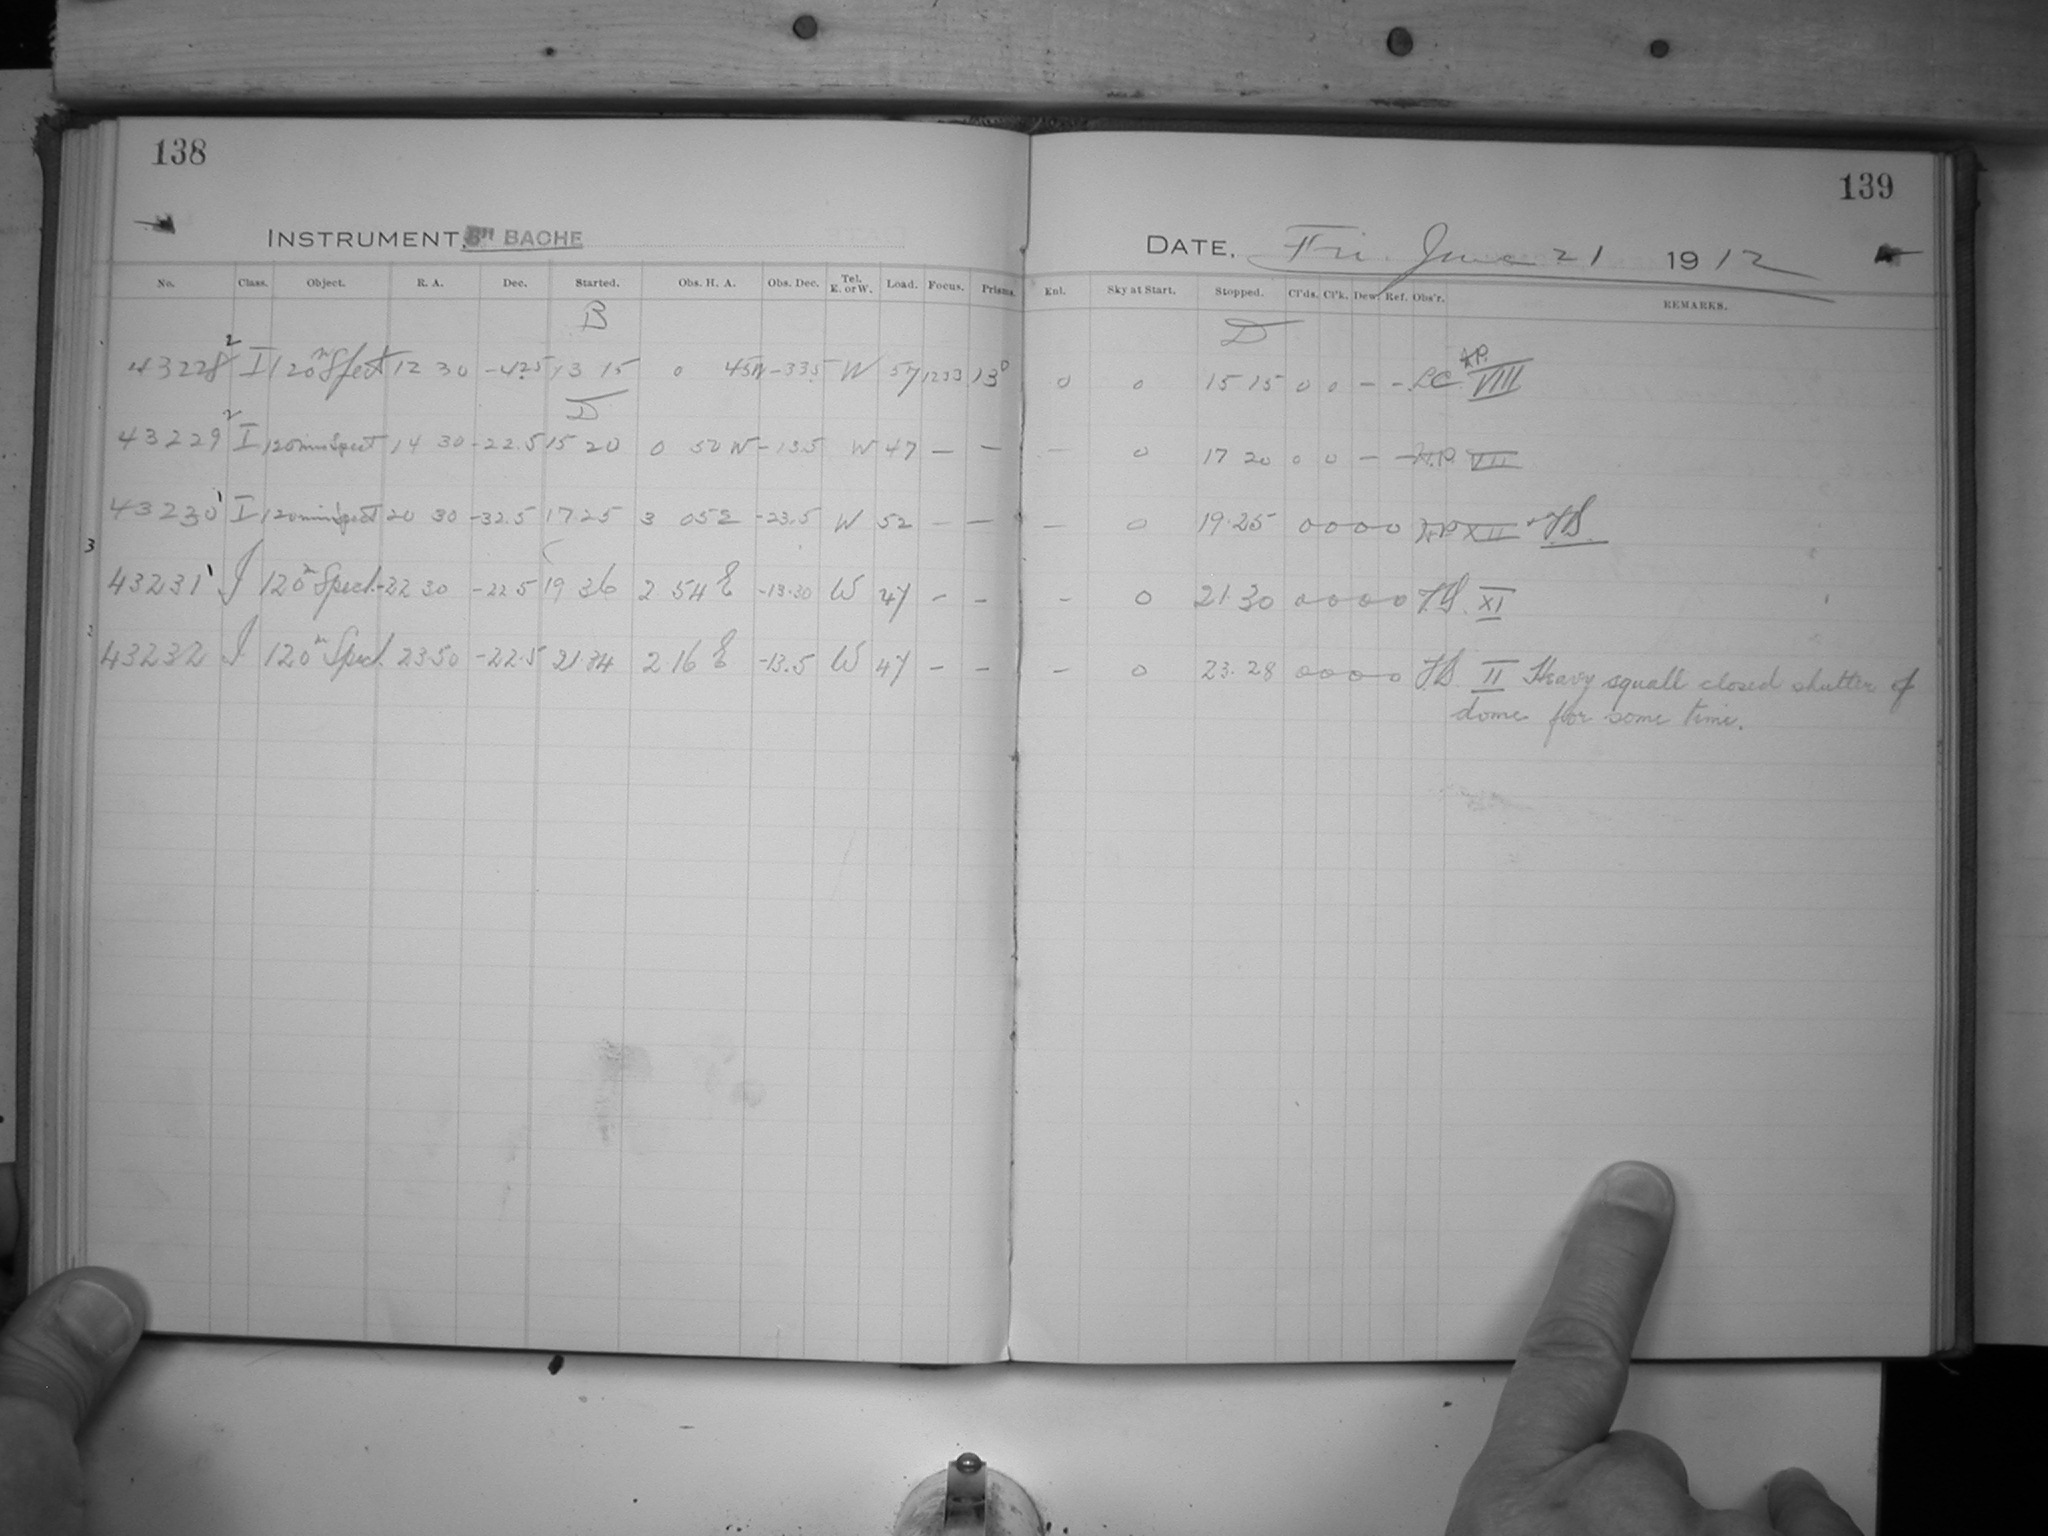 138
139
INSTRUMENT, 8" BACHE
DATE, Fri. June 21 1912
No. Class. Object. R. A. Dec. Started. Obs. H. A. Obs. Dec. Tel. E. or W. Load. Focus. Prisms. Enl. Sky at Start. Stopped. Cl'ds. Cl'k. Dew. Ref. Obs'r. REMARKS.
B D
43228 2 I 120m Spect 12 30 -42.5 13 15 0 45W -33.5 W 57 1233 13° 0 0 15 15 0 0 - - LC A.P. VIII
D
43229 2 I 120min Spect 14 30 -22.5 15 20 0 50 W -13.5 W 47 - - - 0 17 20 0 0 - - A.P. VII
43230 1 I 120min Spect 20 30 -32.5 17 25 3 05E -23.5 W 52 - - - 0 19.25 0 0 0 0 A.P. XII
3
43231 1 I 120m Spect. 22 30 -22.5 19 36 2 54 E -13.30 W 47 - - - 0 21 30 0 0 0 0 XI
43232 I 120m Spect. 23.50 -22.5 21.34 2.16 E -13.5 W 47 - - - 0 23.28 0 0 0 0 II Heavy squall closed shutter of
dome for some time.